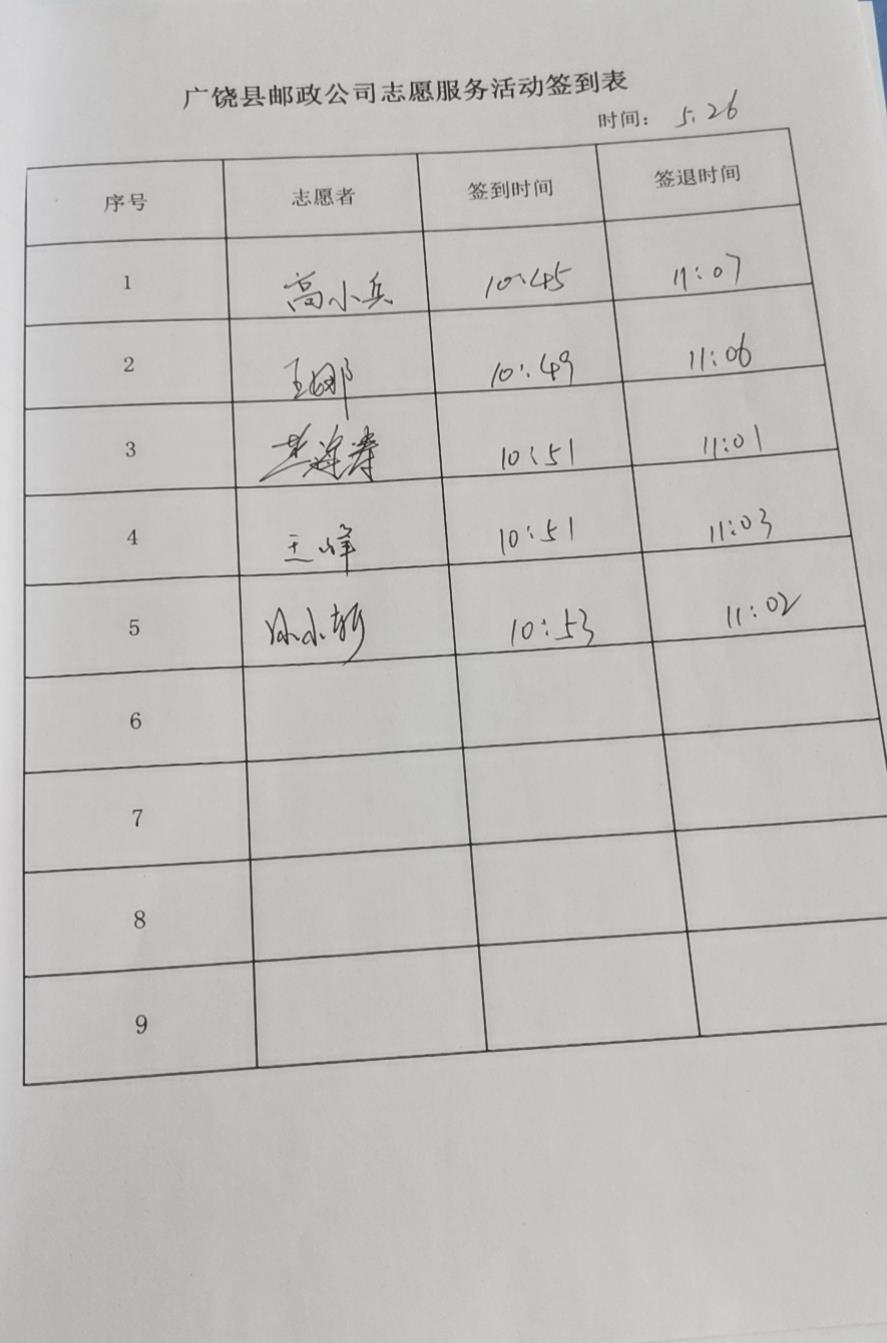 广饶县邮政公司志愿服务活动签到表
时间: 5.26
序号 志愿者 签到时间 签退时间
1 高小兵 10:45 11:07
2 王娜 10:49 11:06
3 10:51 11:01
4 王峰 10:51 11:03
5 10:53 11:02
6
7
8
9